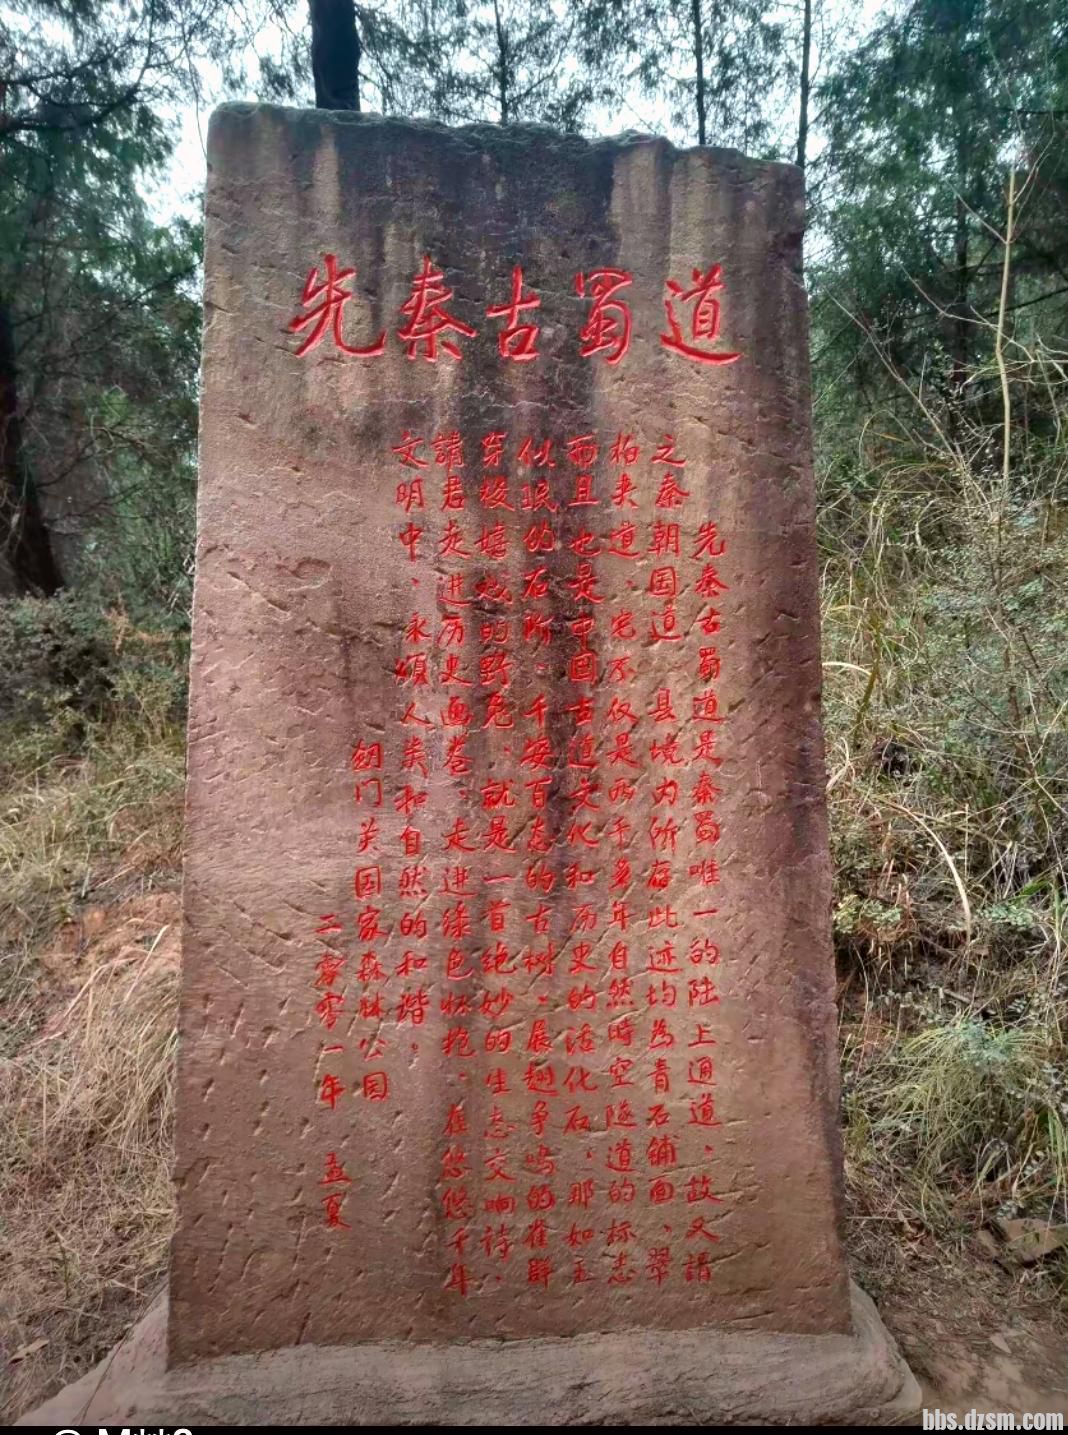 先秦古蜀道
先秦古蜀道是秦蜀唯一的陆上通道、故又謂
之秦朝国道、县境内所存此迹均为青石铺面、翠
柏夹道、它不仅是两千多年自然時空隧道的标志
而且也是中国古道文化和历史的活化石、那如玉
似珉的石阶、千姿百态的古树、展翅争鸣的雀群
穿梭嬉戏的野兔、就是一首绝妙的生态交响诗、
請君走进历史画卷、走进绿色怀抱、在悠悠千年
文明中、永颂人类和自然的和谐。
剑门关国家森林公园
二零零一年 孟夏
bbs.dzsm.com